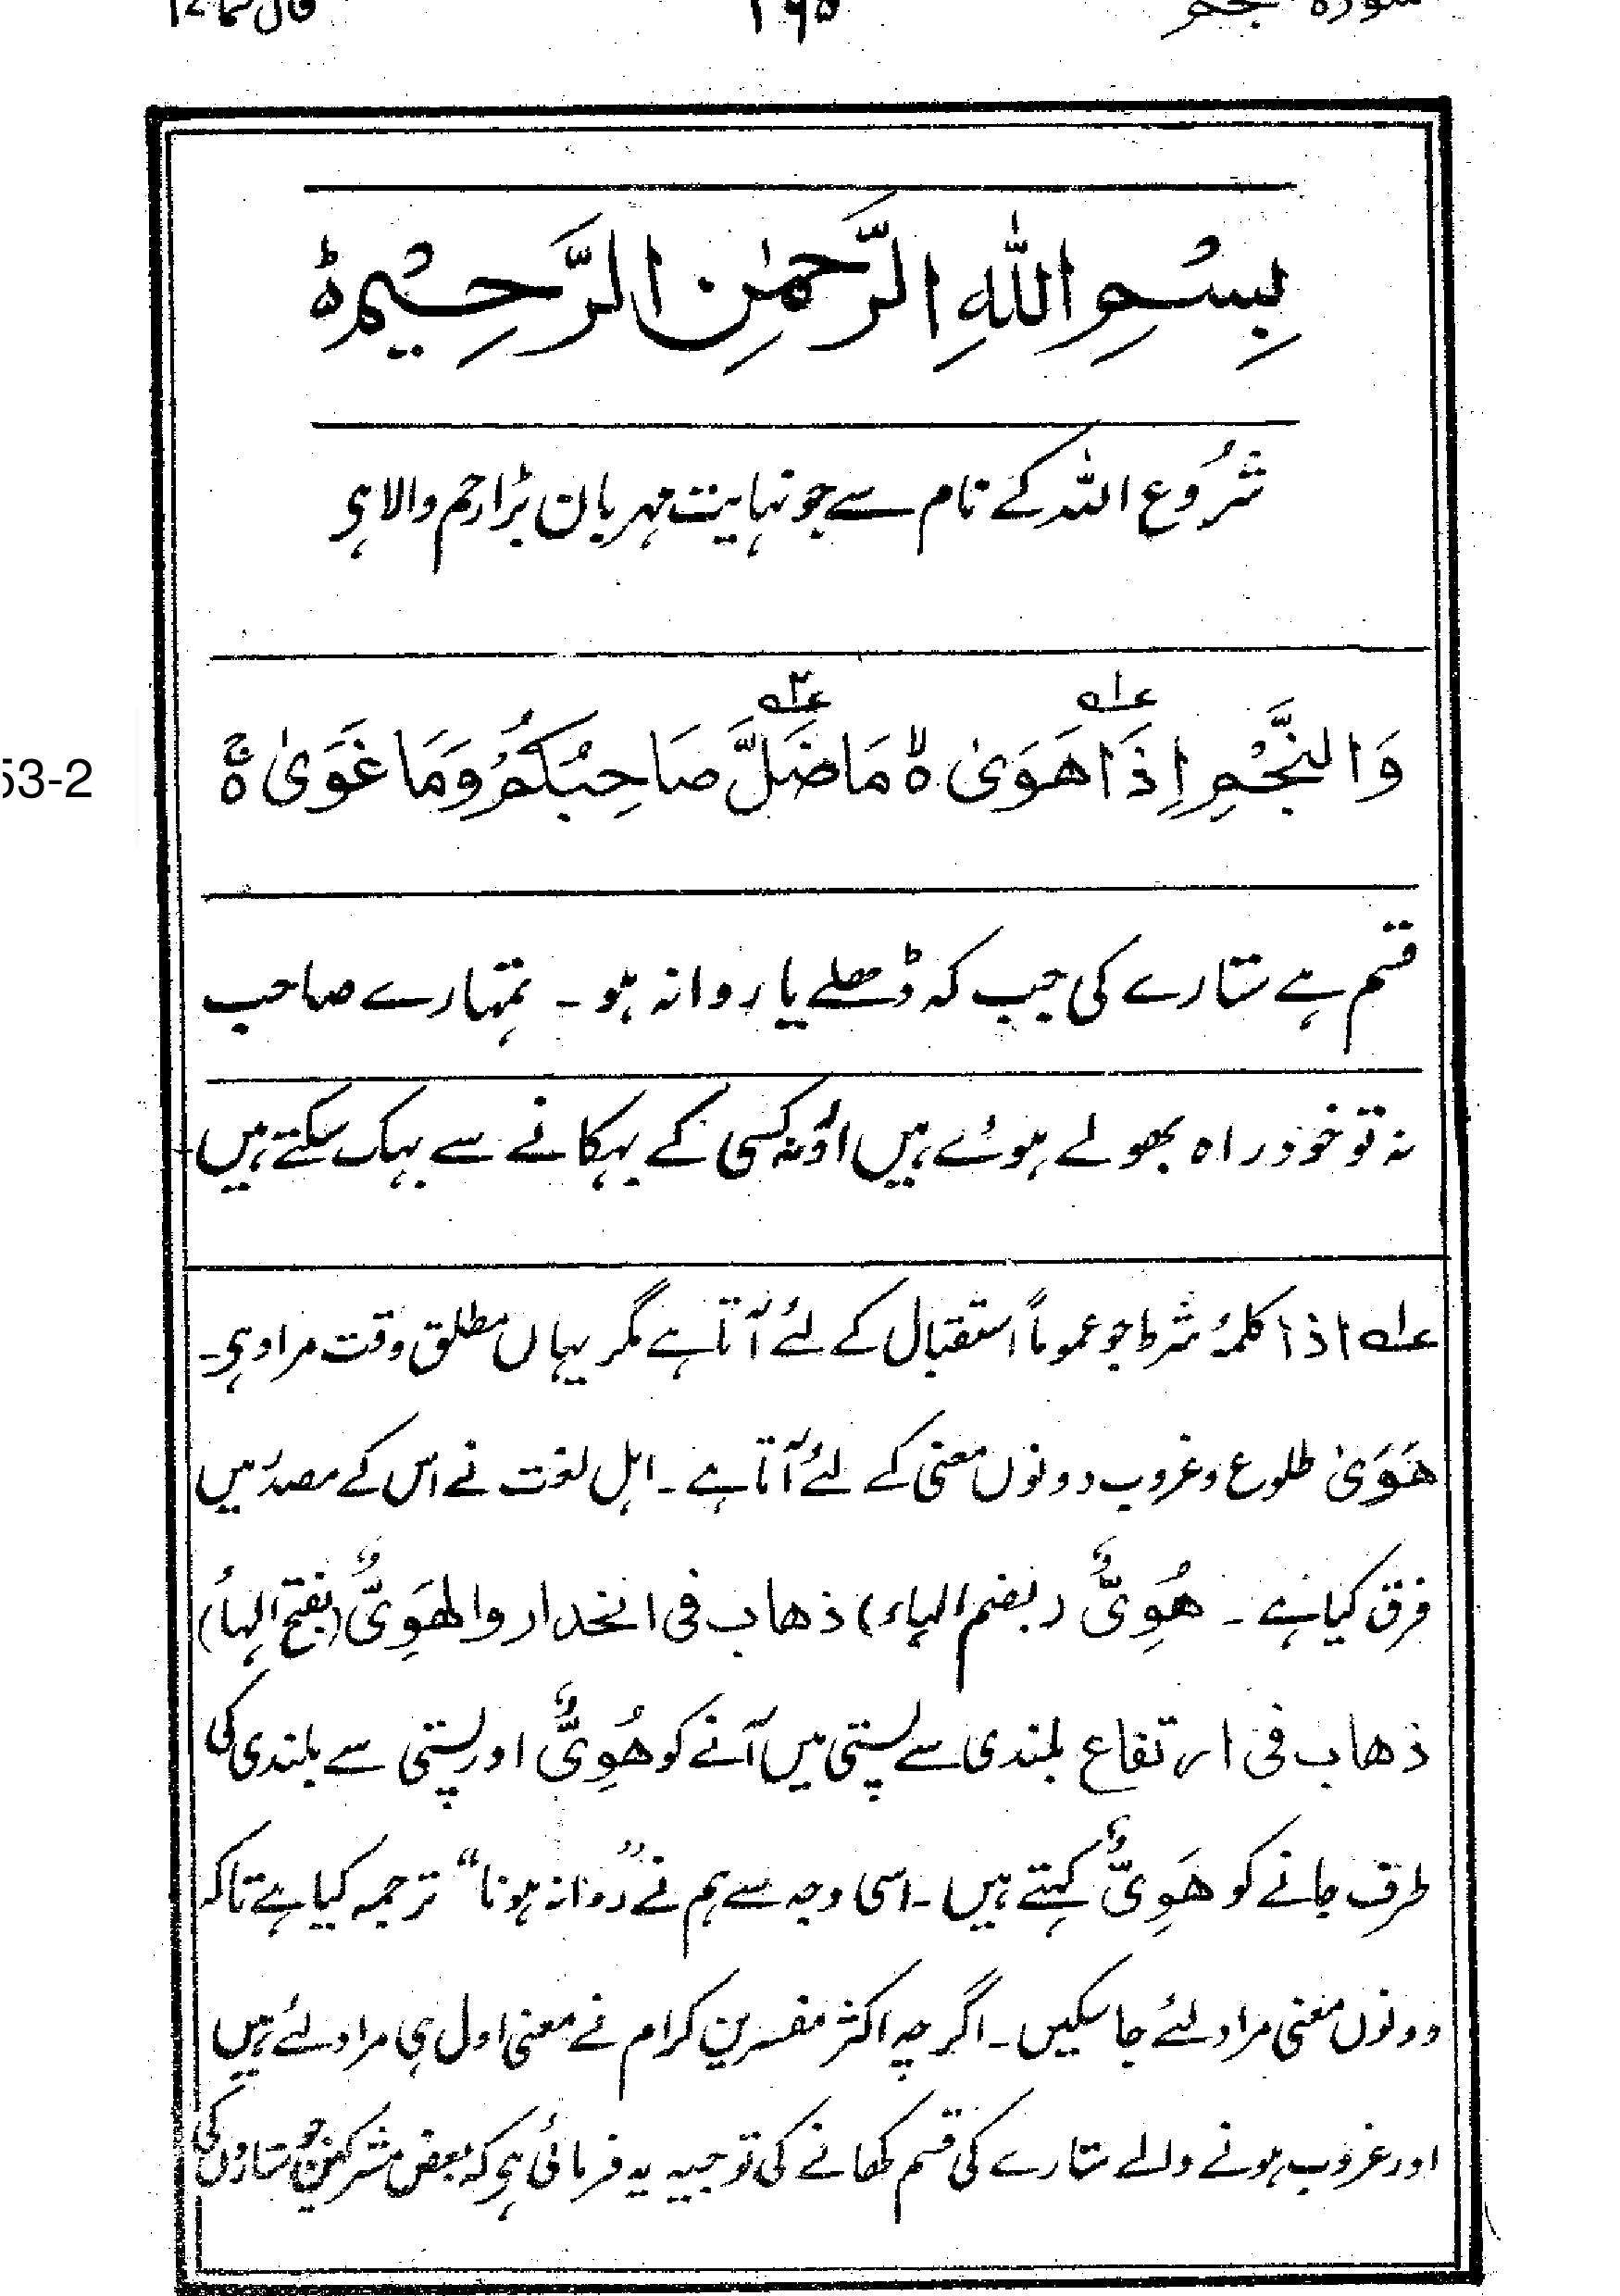 ۱۶۵
بِسْمِ اللّٰهِ الرَّحْمٰنِ الرَّحِیْمِ ۵
شُروع اللہ کے نام سے جو نہایت مہربان بڑا رحم والا ہی
عـ۱ـہ عـ۲ـہ
وَالنَّجْمِ اِذَا هَوَىٰ ۵ۙ مَا ضَلَّ صَاحِبُكُمْ وَمَا غَوَىٰ ۵ۚ
53-2
قسم ہے ستارے کی جب کہ ڈھلے یا روانہ ہو ۔ تمہارے صاحب
نہ تو خود راہ بھولے ہوئے ہیں اور نہ کسی کے بہکانے سے بہک سکتے ہیں
عـ۱ـہ اذا کلمۂ شرط جو عموماً استقبال کے لئے آتا ہے مگر یہاں مطلق وقت مراد ہی۔
هَوَىٰ طلوع و غروب دونوں معنی کے لئے آتا ہے ۔ اہل لغت نے اس کے مصدر میں
فرق کیا ہے ۔ هُوِیٌّ (بضم الہاء) ذهاب فی انحدار والهَوِیٌّ (بفتح الہاء)
ذهاب فی ارتفاع بلندی سے پستی میں آنے کو هُوِیٌّ اور پستی سے بلندی کی
طرف جانے کو هَوِیٌّ کہتے ہیں ۔ اسی وجہ سے ہم نے ”روانہ ہونا“ ترجمہ کیا ہے تاکہ
دونوں معنی مراد لئے جا سکیں ۔ اگرچہ اکثر مفسرین کرام نے معنی اول ہی مراد لئے ہیں
اور غروب ہونے والے ستارے کی قسم کھانے کی توجیہ یہ فرمائی ہی کہ بعض مشرکین جو ستاروں کی